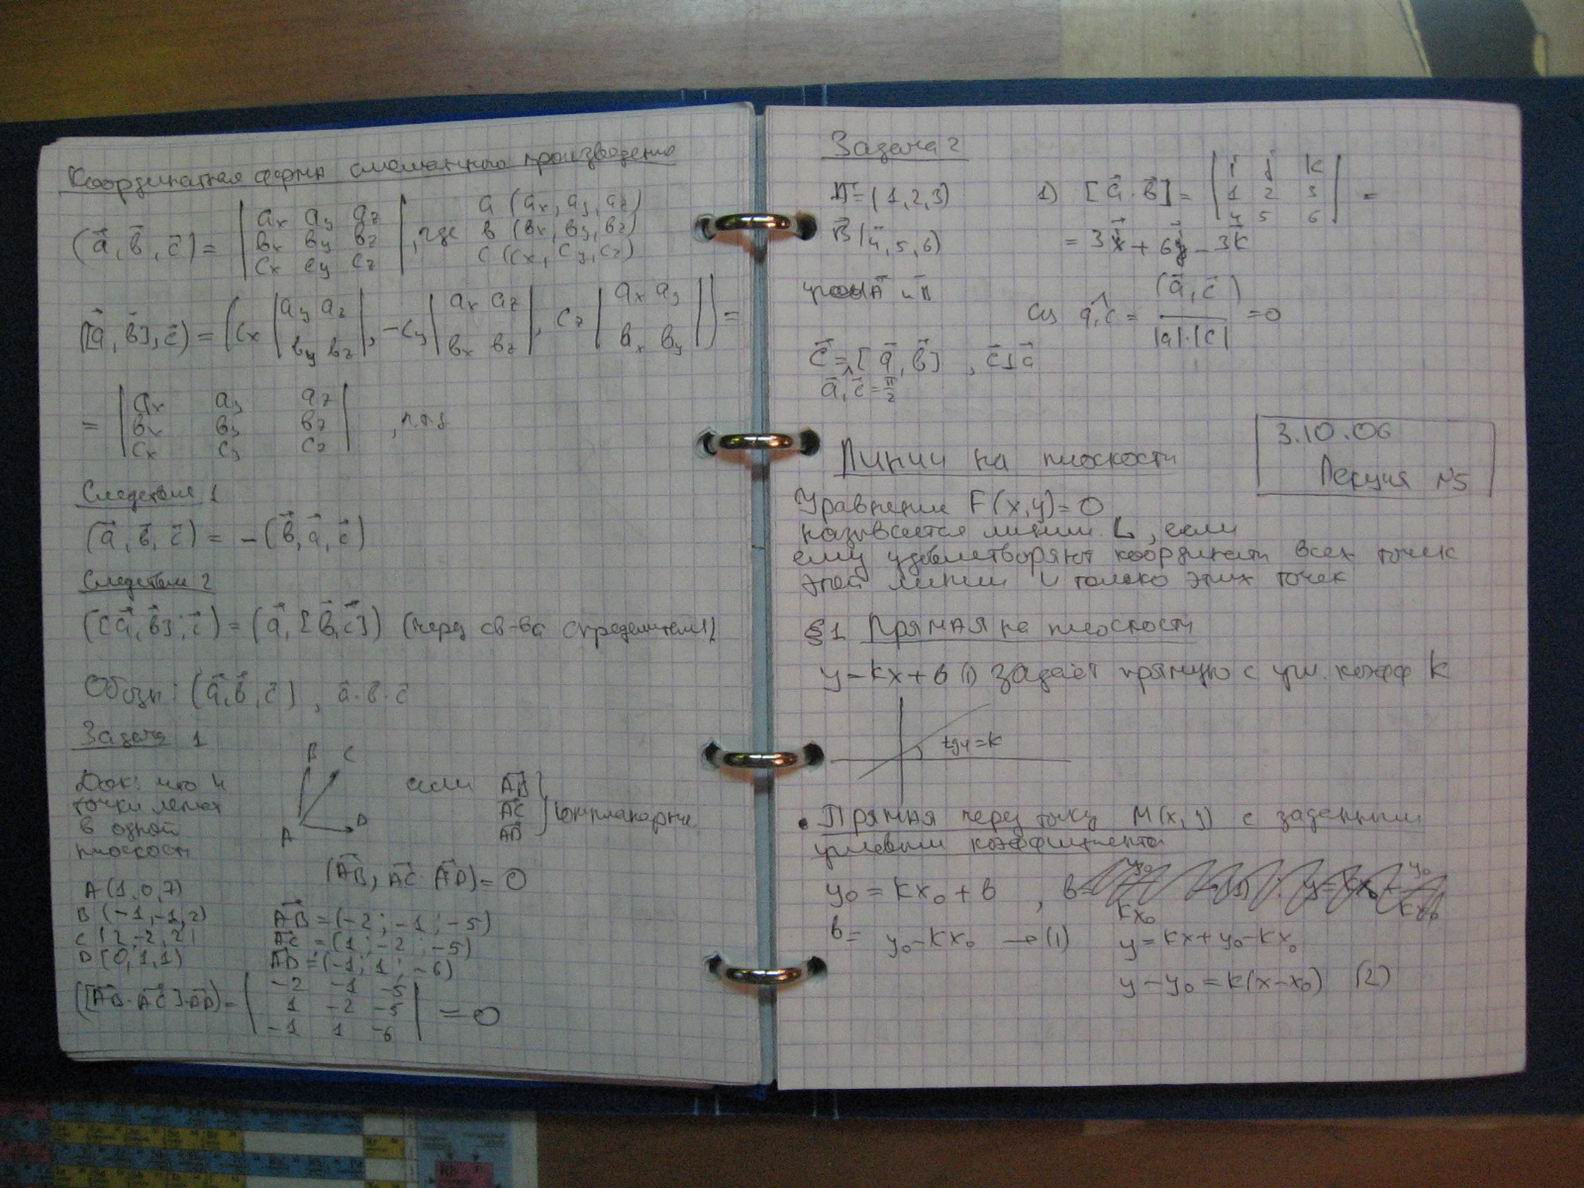 Координатная форма смешанного произведения
(a⃗, b⃗, c⃗) = | ax ay az |
| bx by bz |
| cx cy cz | , где
a (ax, ay, az)
b (bx, by, bz)
c (cx, cy, cz)
([a⃗, b⃗], c⃗) = ( cx | ay az |
| by bz | , -cy | ax az |
| bx bz | , cz | ax ay |
| bx by | ) =
= | ax ay az |
| bx by bz |
| cx cy cz | , ч.т.д
Следствие 1
(a⃗, b⃗, c⃗) = -(b⃗, a⃗, c⃗)
Следствие 2
([a⃗, b⃗], c⃗) = (a⃗, [b⃗, c⃗]) (через св-ва определителя)
Обозн: (a⃗, b⃗, c⃗) , a⃗·b⃗·c⃗
Задача 1
Док: что 4
точки лежат
в одной
плоскости
B C
A D
если AB
AC
AD компланарны
(AB, AC AD) = 0
A (1, 0, 7)
B (-1, -1, 2)
C (2, -2, 2)
D (0, 1, 1)
AB = (-2; -1; -5)
AC = (1; -2; -5)
AD = (-1; 1; -6)
([AB · AC] · AD) = | -2 -1 -5 |
| 1 -2 -5 |
| -1 1 -6 | = 0
Задача 2
A = (1, 2, 3)
B (4, 5, 6)
1) [a⃗ · b⃗] = | i j k |
| 1 2 3 |
| 4 5 6 | =
= 3 + 6 - 3k⃗
a⃗,c⃗ = (a⃗, c⃗) / |a|·|c| = 0
c⃗ = [a⃗, b⃗] , c⃗ ⊥ a⃗
a⃗, c⃗ = π/2
3.10.06
Лекция №5
Линии на плоскости
Уравнение F(x, y) = 0
называется линии L, если
ему удовлетворяют координаты всех точек
этой линии и только этих точек
§1 Прямая на плоскости
y = kx + b (1) задаёт прямую с угл. коэфф k
tgφ = k
• Прямая через точку M(x, y) с заданным
угловым коэффициентом
y₀ = kx₀ + b , b =
b = y₀ - kx₀ → (1) y = kx + y₀ - kx₀
y - y₀ = k(x - x₀) (2)